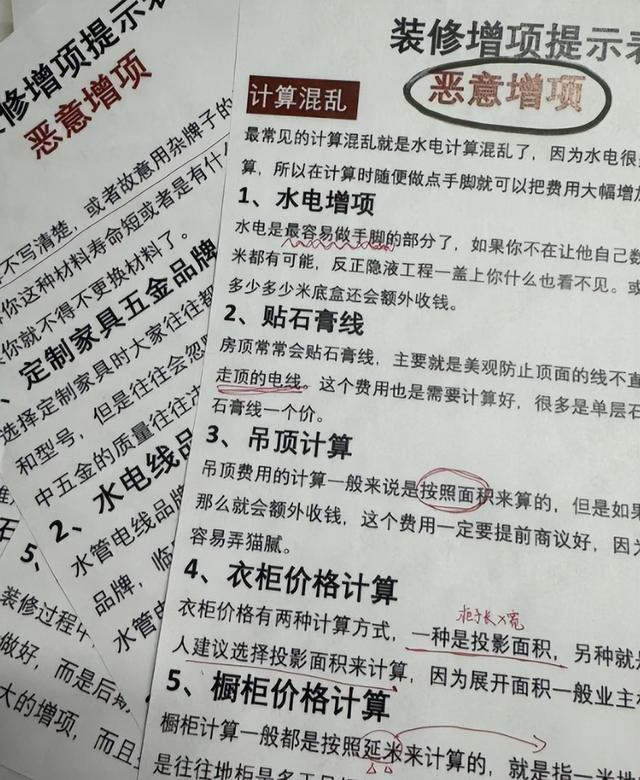 装修增项提示表
恶意增项
计算混乱
最常见的计算混乱就是水电计算混乱了，因为水电很
算，所以在计算时随便做点手脚就可以把费用大幅增加
1、水电增项
水电是最容易做手脚的部分了，如果你不在让他自己数
米都有可能，反正隐液工程一盖上你什么也看不见。或
多少多少米底盒还会额外收钱。
2、贴石膏线
房顶常常会贴石膏线，主要就是美观防止顶面的线不直
走顶的电线。这个费用也是需要计算好，很多是单层石
石膏线一个价。
3、吊顶计算
吊顶费用的计算一般来说是按照面积来算的，但是如果
那么就会额外收钱，这个费用一定要提前商议好，因为
容易弄猫腻。
4、衣柜价格计算
柜子长×宽
衣柜价格有两种计算方式，一种是投影面积，另种就是
人建议选择投影面积来计算，因为展开面积一般业主
5、橱柜价格计算
橱柜计算一般都是按照延米来计算的，就是指一米地
是往往地柜是多于吊
修增项提示表
恶意增项
不写清楚，或者故意用杂牌子的
你这种材料寿命短或者是有什
你就不得不更换材料了。
、定制家具五金品牌
选择定制家具时大家往往都
和型号，但是往往会忽
中五金的质量往往
2、水电线品
水管电线品牌
品牌，临
水管电
5，
装修过程中
做好，而是后期
大的增项，而且